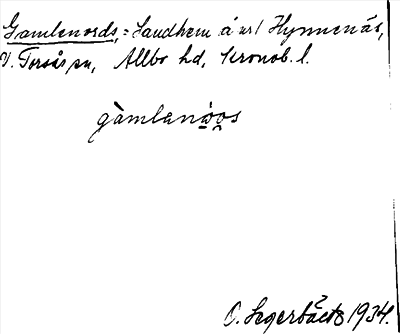 Gamlenords, = Sandhem å nr 1 Hynnenäs,
V. Torsås sn, Allbo hd, Kronob. l.
gàmlanọọs
O. Segerbäck 1934.